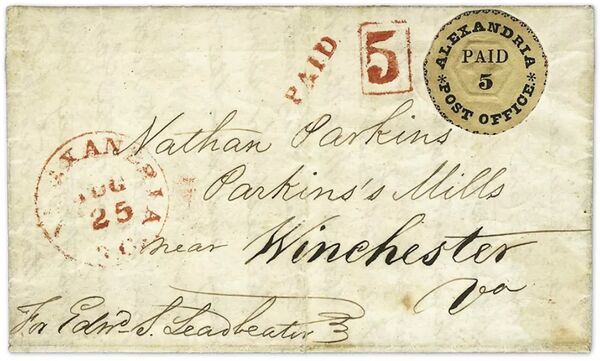 PAID
5
ALEXANDRIA
PAID
5
* POST OFFICE. *
Nathan Parkins
Parkins's Mills
near Winchester
Va
ALEXANDRIA
AUG
25
D.C.
For Edwd. S. Leadbeater